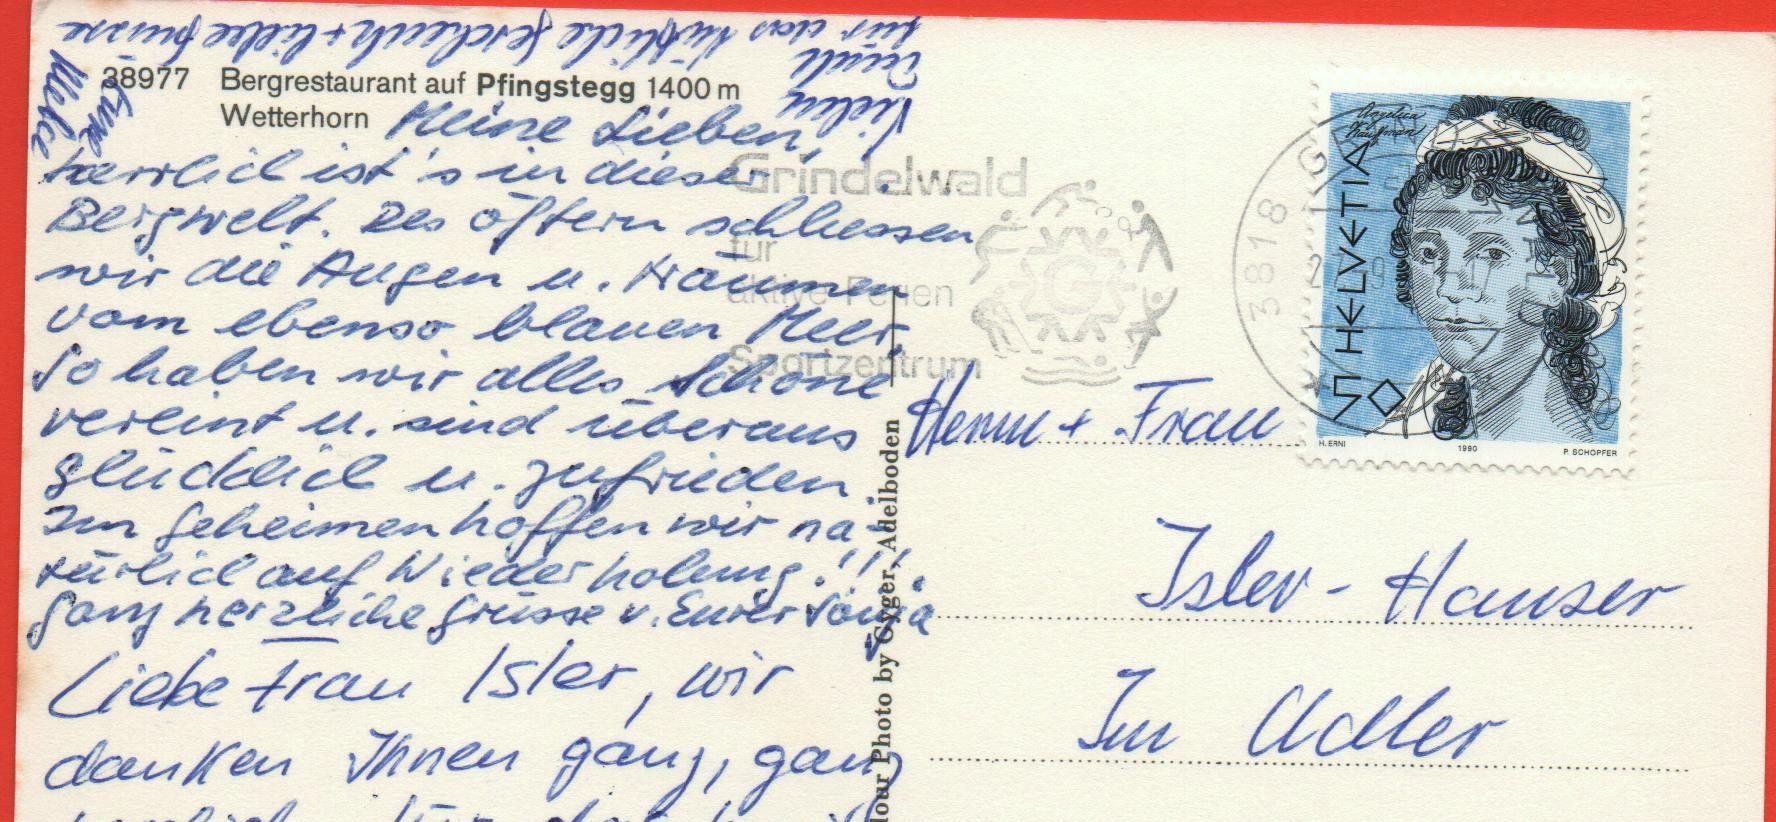 38977 Bergrestaurant auf Pfingstegg 1400 m
Wetterhorn
Meine Lieben,
herrlich ist's in dieser
Bergwelt. Des öftern schliessen
wir die Augen u. träumen
vom ebenso blauen Meer.
So haben wir alles Schöne
vereint u. sind überaus
glücklich u. zufrieden.
Im geheimen hoffen wir na-
türlich auf Wiederholung!!!
Ganz herzliche Grüsse v. Eurer Sonja
Liebe Frau Isler, wir
danken Ihnen ganz, ganz
Vielen
Dank
für das nützliche Geschenk + liebe Grüsse
Grindelwald
für
aktive Ferien
Sportzentrum
3818
Angelica
Kauffmann
HELVETIA
50
H. ERNI
1990
P. SCHOPFER
lour Photo by Gyger, Adelboden
Herrn + Frau
Isler-Hauser
Im Adler